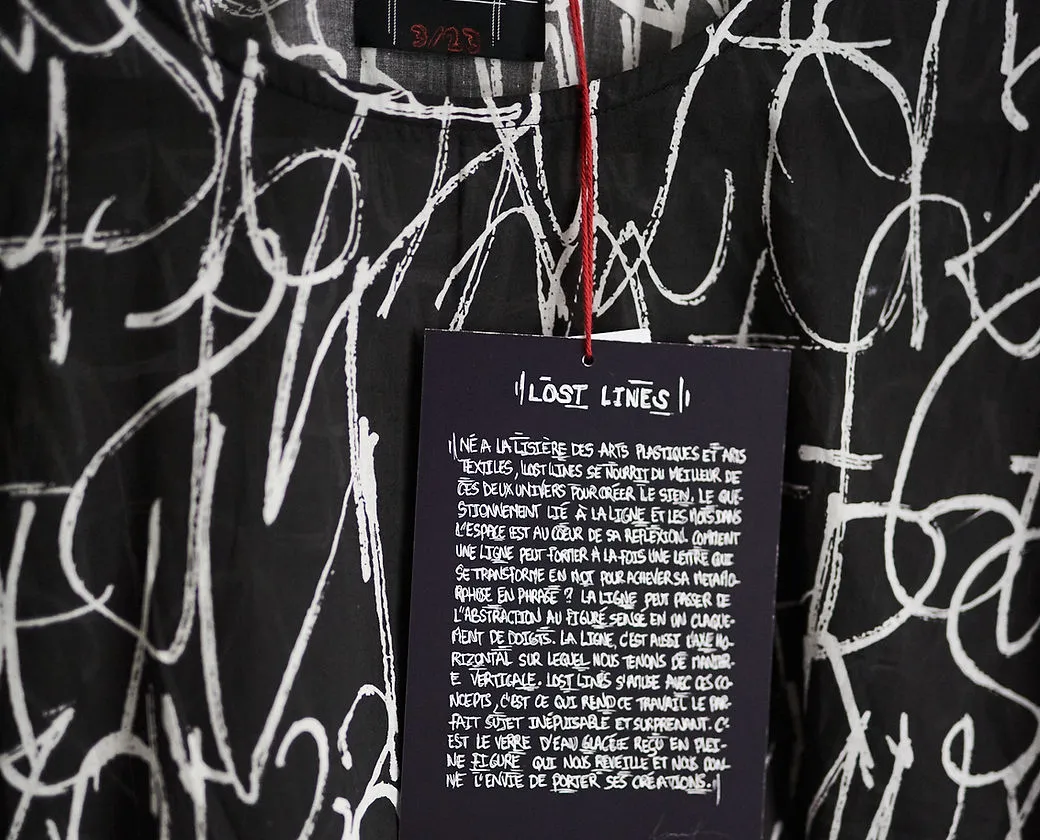 3/23
LOST LINES
NÉ A LA LISIÈRE DES ARTS PLASTIQUES ET ARTS
TEXTILES, LOST LINES SE NOURRIT DU MEILLEUR DE
CES DEUX UNIVERS POUR CRÉER LE SIEN. LE QUE-
STIONNEMENT LIÉ À LA LIGNE ET LES MOTS DANS
L'ESPACE EST AU CŒUR DE SA REFLEXION. COMMENT
UNE LIGNE PEUT FORMER A LA FOIS UNE LETTRE QUI
SE TRANSFORME EN MOT POUR ACHEVER SA METAMO-
RPHOSE EN PHRASE ? LA LIGNE PEUT PASSER DE
L'ABSTRACTION AU FIGURÉ SENSE EN UN CLAQUE-
MENT DE DOIGTS. LA LIGNE, C'EST AUSSI L'AXE HO-
RIZONTAL SUR LEQUEL NOUS TENONS DE MANIÈR-
E VERTICALE. LOST LINES S'AMUSE AVEC CES CO-
NCEPTS, C'EST CE QUI REND CE TRAVAIL LE PAR-
FAIT SUJET INÉPUISABLE ET SURPRENANT. C'
EST LE VERRE D'EAU GLACÉE REÇU EN PLEI-
NE FIGURE QUI NOUS RÉVEILLE ET NOUS DON-
NE L'ENVIE DE PORTER SES CRÉATIONS.